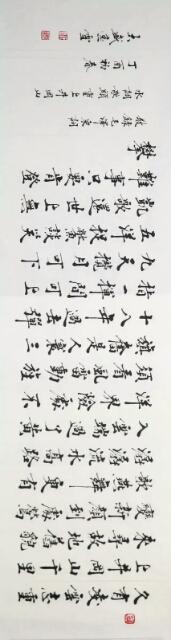 久有凌雲志重
上井岡山千里
來尋故地舊貌
變新顏到處鶯
歌燕舞更有
潺潺流水高路
入雲端過了黄
洋界險處不
須看風雷動旌
旗奮是人寰三
十八年過去彈
指一揮間可上
九天攬月可下
五洋捉鱉談笑
凱歌還世上無
難事只要肯登
攀
敬錄毛澤東詞
水調歌頭重上井岡山
丁酉初春